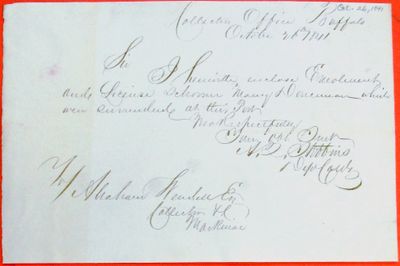 Oct. 26, 1841
Collectors Office Buffalo
October 26th 1841
Sir
I herewith enclose Enrolment
and License Schooner Nancy Dousman which
were surrendered at this Port
Most respectfully
Your obt Servt
A. Stebbins
Dep Collr
To Abraham Wendell Esq
Collector &c
Mackinac